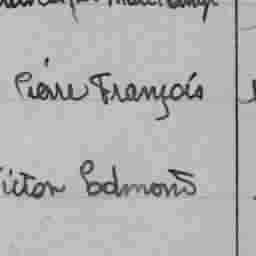 Pierre François
Victor Edmond